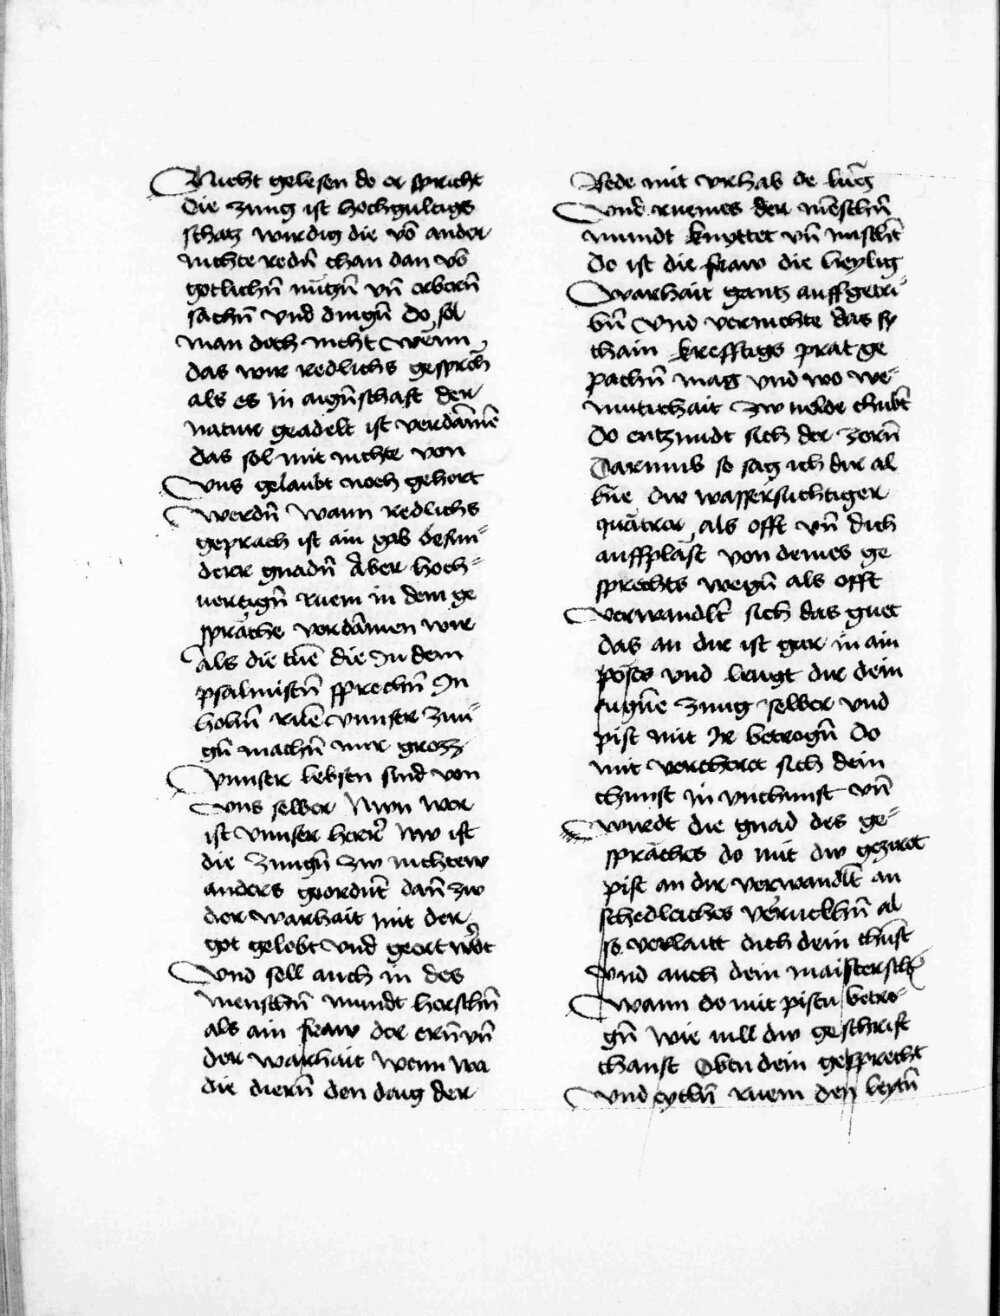 Nicht gelesen do er spricht
die zung ist hochgultigs
schatz wirdig die võ ander
nichte redñ chan dan võ
gotlichñ mügñ vñ erberñ
sachñ vnd dingñ Do sol
man doch nicht wenn
das wir redlichs gesprch̃
als es in aigñschaft der
natur geadelt ist verdãmẽ
das sol mit nichte von
vns gelaubt noch gehort
werdñ wann redlichs
geprach ist ain gab besun=
derr gnadñ Aber hoch=
vertigñ ruem in dem ge
sprache verdãmen wir
Als die tuẽ die In dem
psalmistñ sprechñ In
hohñ ruẽ vnnser zun=
gñ machñ mir grozz
vnnser lebsen sind von
vns selber Nun wer
ist vnnser herr̃ Nw ist
die zungñ zw nichtew
anders geordñt dañ zw
der warhait mit der
got gelobt vnd geert wirt
vnd soll auch in des
menschñ mundt herschñ
als ain fraw der erñ vñ
der warhait wenn wa
die dierñ den daig der
Rede mit vrhab de lug̃
vnd ruemes der mẽschñ
mundt knyttet vñ mischt̃
do ist die fraw die heylig
warhait gantz auffgetri=
bñ vnd vernichte das sy
chain krefftigs prat ge
pachñ mag vnd wo we=
mutichait zw melde chubt̃
do entzundt sich der zorñ
Darumb so sag ich dir al
hie dw wassersuchtiger
quãtror als offt vñ dich
auffplast von deines ge
sprechts wegñ als offt
verwandlt̃ sich das guet
das an dir ist gar in ain
poses vnd leugt dir dein
lugñe zung selber vnd
pist mit Ir betrogñ Do
mit vercheret sich dein
chunst in vnchunst vñ
wirdt die gnad des ge=
spraches do mit dw geziret
pist an dir verwandlt̃ an
schedleiches verruckhñ al
so verlaitt dich dein chũst
vnd auch dein maisterschã
wann do mit pistu betro=
gñ wie will dw geschrift
chanst Oben dein gesprecht
vnd eytlñ ruem den leytñ